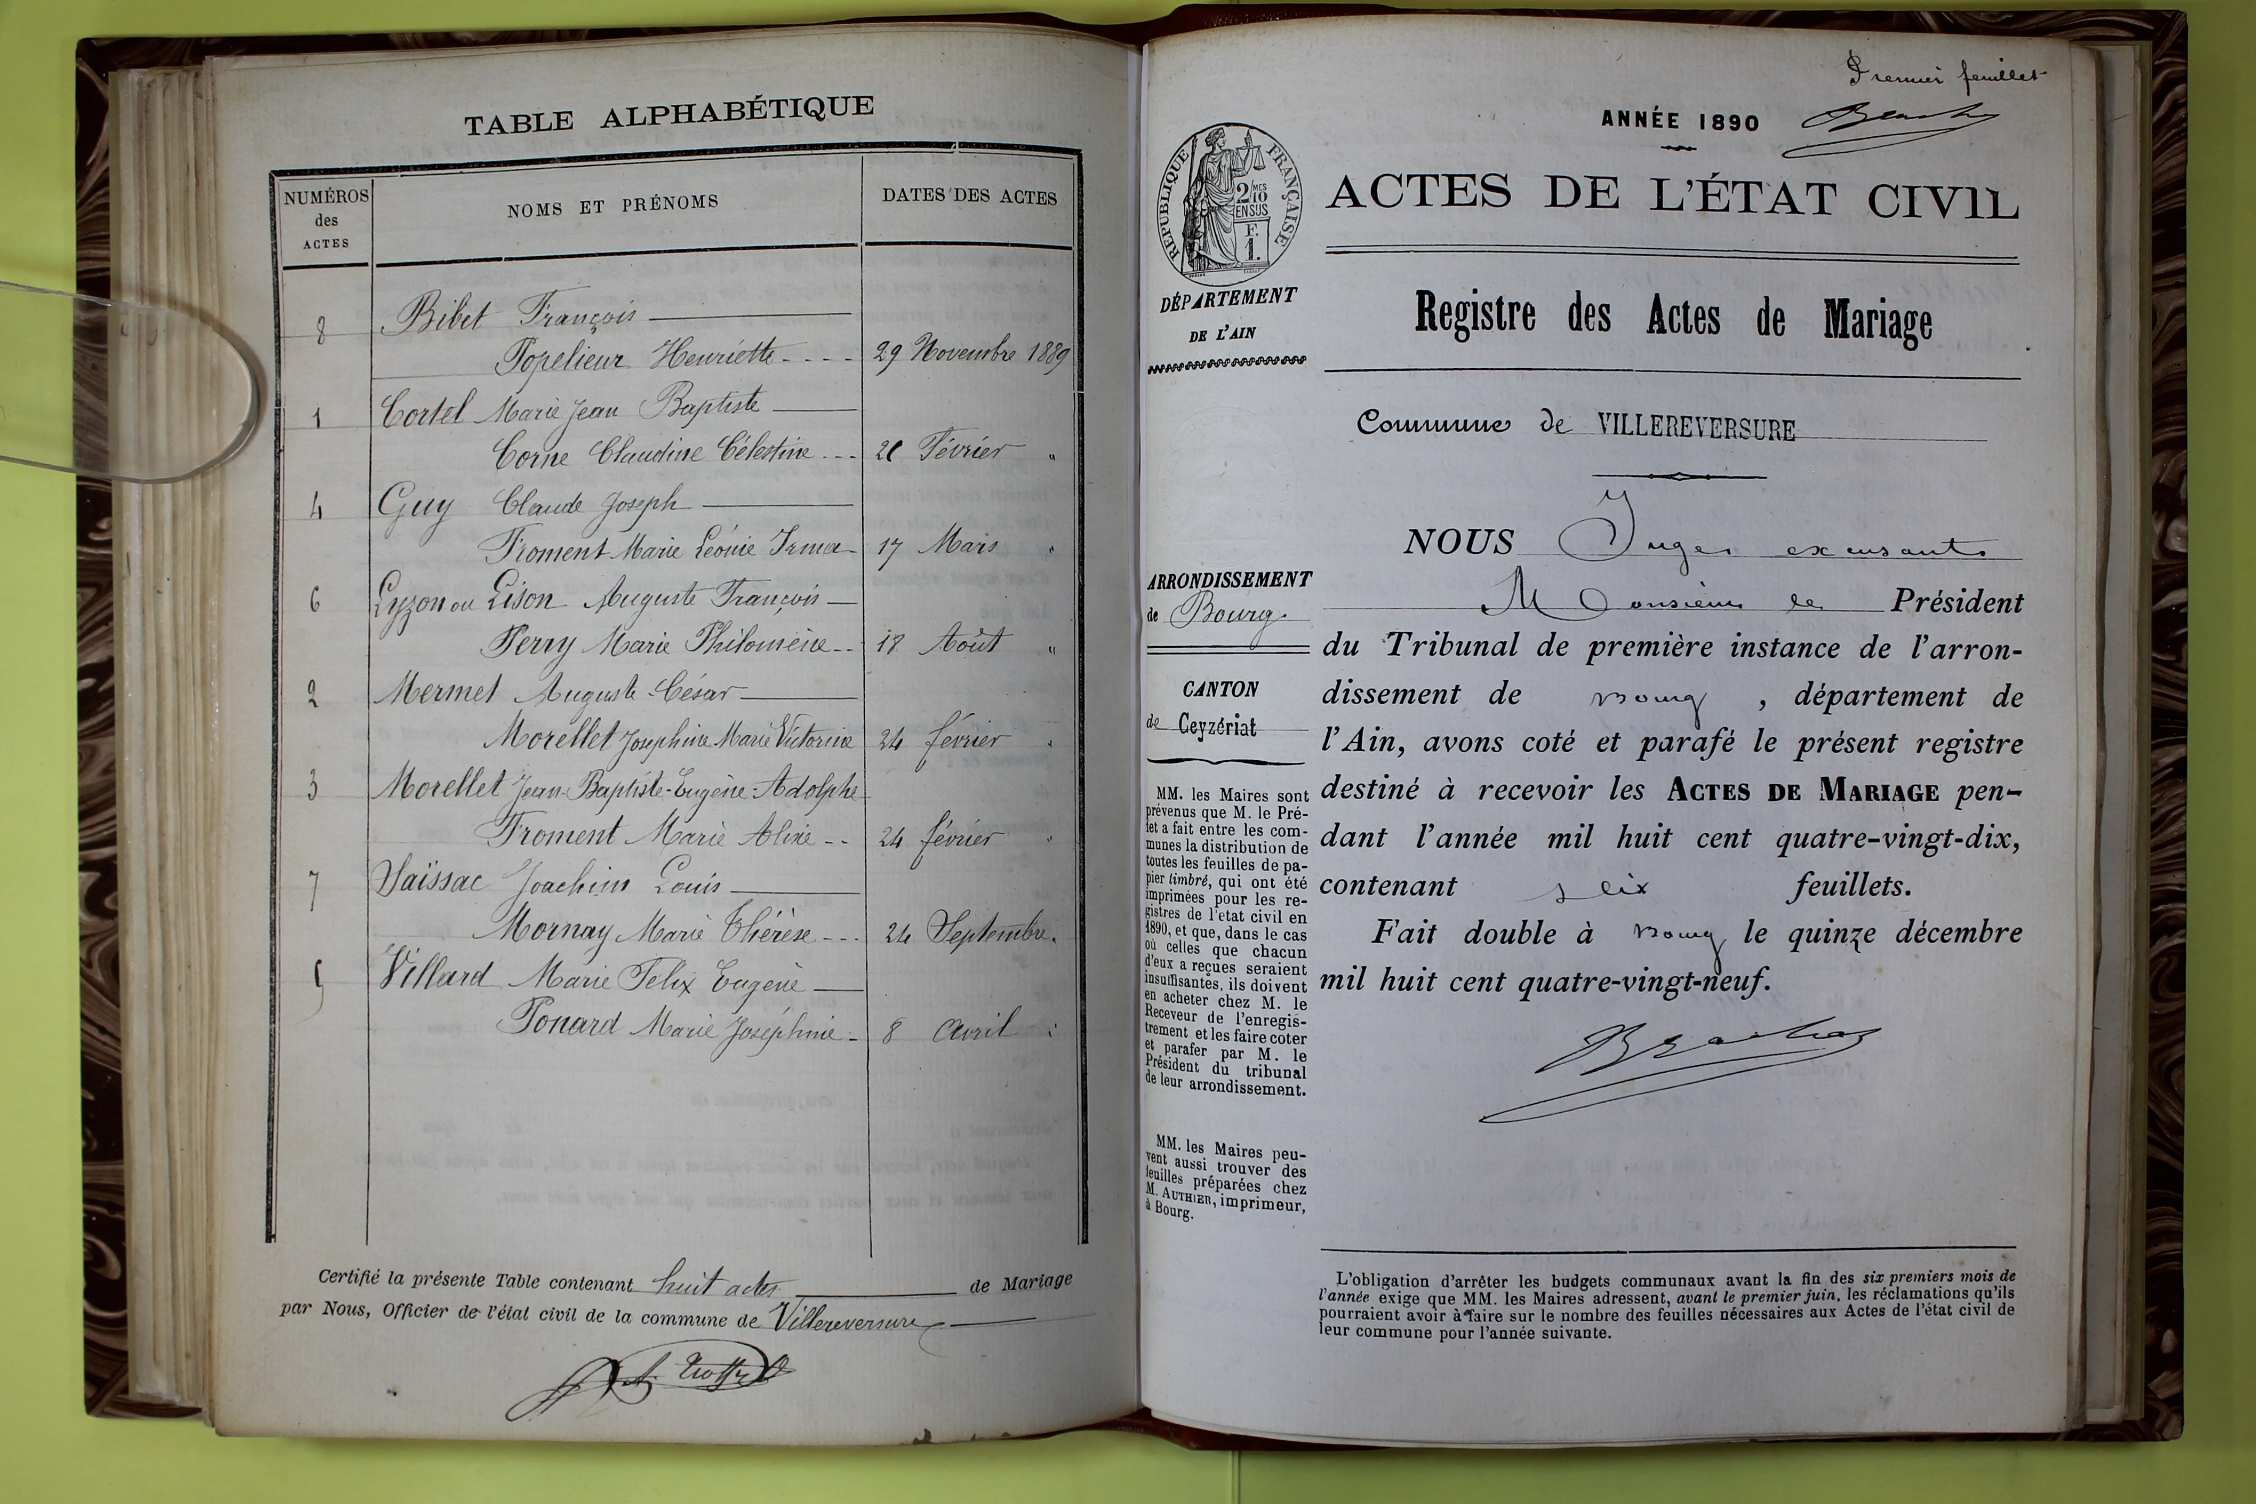 TABLE ALPHABÉTIQUE
NUMÉROS des ACTES
NOMS ET PRÉNOMS
DATES DES ACTES
8 Bibet François
Popelieur Henriette 29 Novembre 1889
1 Cortel Marie Jean Baptiste
Corne Claudine Célestine Février "
4 Guy Claude Joseph
Froment Marie Léonie Irma 17 Mars "
6 Lyzon ou Lison Auguste François
Perry Marie Philomène 18 Août "
2 Mermet Auguste-César
Morellet Joséphine Marie Victorine 24 février "
3 Morellet Jean-Baptiste-Eugène-Adolphe
Froment Marie Aline 24 février "
7 Saïssac Joachim Louis
Mornay Marie Thérèse 24 Septembre "
5 Villard Marie Felix Eugène
Ponard Marie Joséphine 8 Avril "
Certifié la présente Table contenant huit actes de Mariage
par Nous, Officier de l'état civil de la commune de Villereversure
Premier feuillet
ANNÉE 1890
RÉPUBLIQUE FRANÇAISE
2/10 MES
EN SUS
F.
1.
ACTES DE L'ÉTAT CIVIL
DÉPARTEMENT
DE L'AIN
Registre des Actes de Mariage
Commune de VILLEREVERSURE
NOUS Juges
Monsieur le Président
du Tribunal de première instance de l'arron-
dissement de Bourg, département de
l'Ain, avons coté et parafé le présent registre
destiné à recevoir les ACTES DE MARIAGE pen-
dant l'année mil huit cent quatre-vingt-dix,
contenant six feuillets.
Fait double à Bourg le quinze décembre
mil huit cent quatre-vingt-neuf.
ARRONDISSEMENT
de Bourg
CANTON
de Ceyzériat
MM. les Maires sont
prévenus que M. le Pré-
fet a fait entre les com-
munes la distribution de
toutes les feuilles de pa-
pier timbré, qui ont été
imprimées pour les re-
gistres de l'etat civil en
1890, et que, dans le cas
où celles que chacun
d'eux a reçues seraient
insuffisantes, ils doivent
en acheter chez M. le
Receveur de l'enregis-
trement et les faire coter
et parafer par M. le
Président du tribunal
de leur arrondissement.
MM. les Maires peu-
vent aussi trouver des
feuilles préparées chez
M. AUTHIER, imprimeur,
à Bourg.
L'obligation d'arrêter les budgets communaux avant la fin des six premiers mois de
l'année exige que MM. les Maires adressent, avant le premier juin, les réclamations qu'ils
pourraient avoir à faire sur le nombre des feuilles nécessaires aux Actes de l'état civil de
leur commune pour l'année suivante.